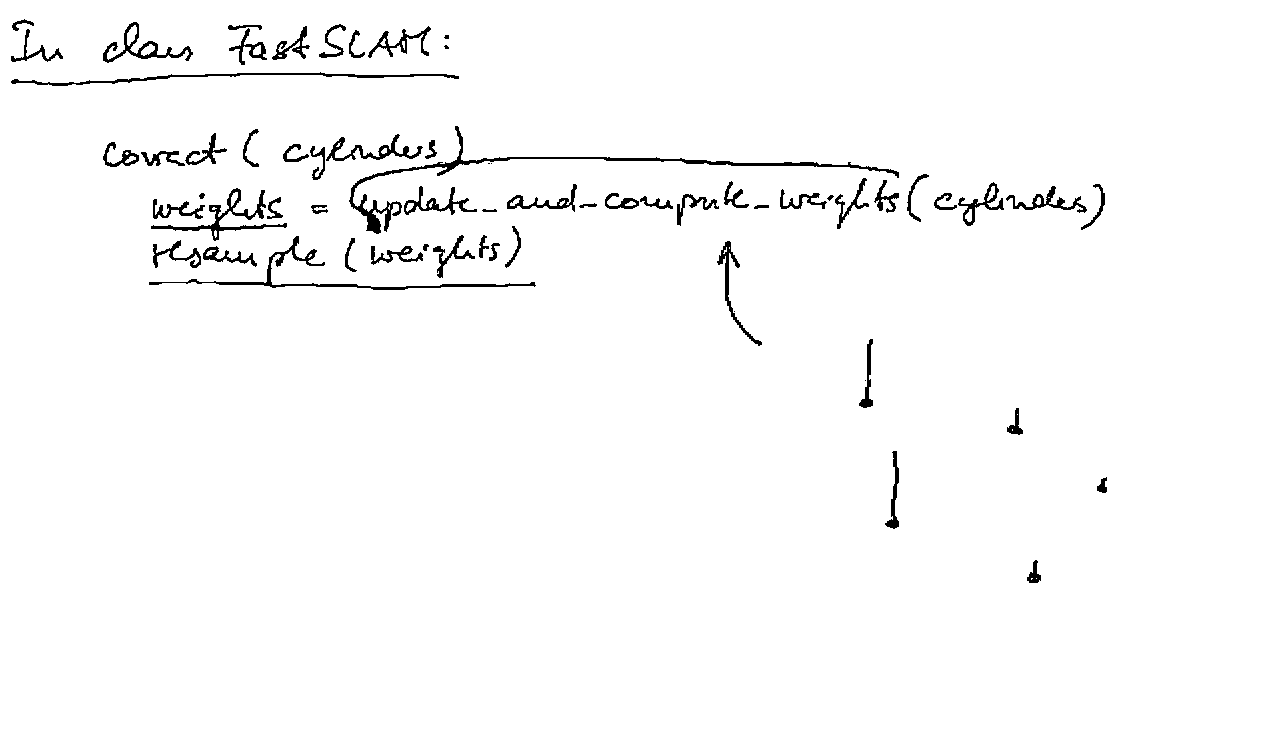 In class FastSLAM:
correct (cylinders)
weights = update_and_compute_weights (cylinders)
resample (weights)